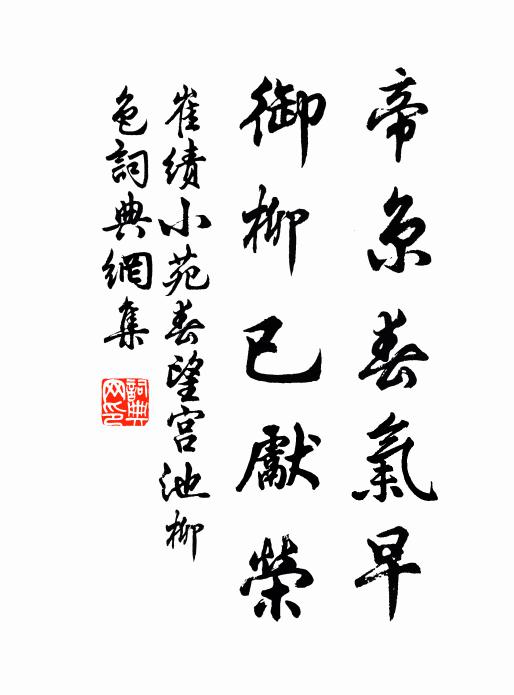 帝京春氣早
御柳已獻榮
崔績小苑春望宮池柳
色詞典網集
詞典網印